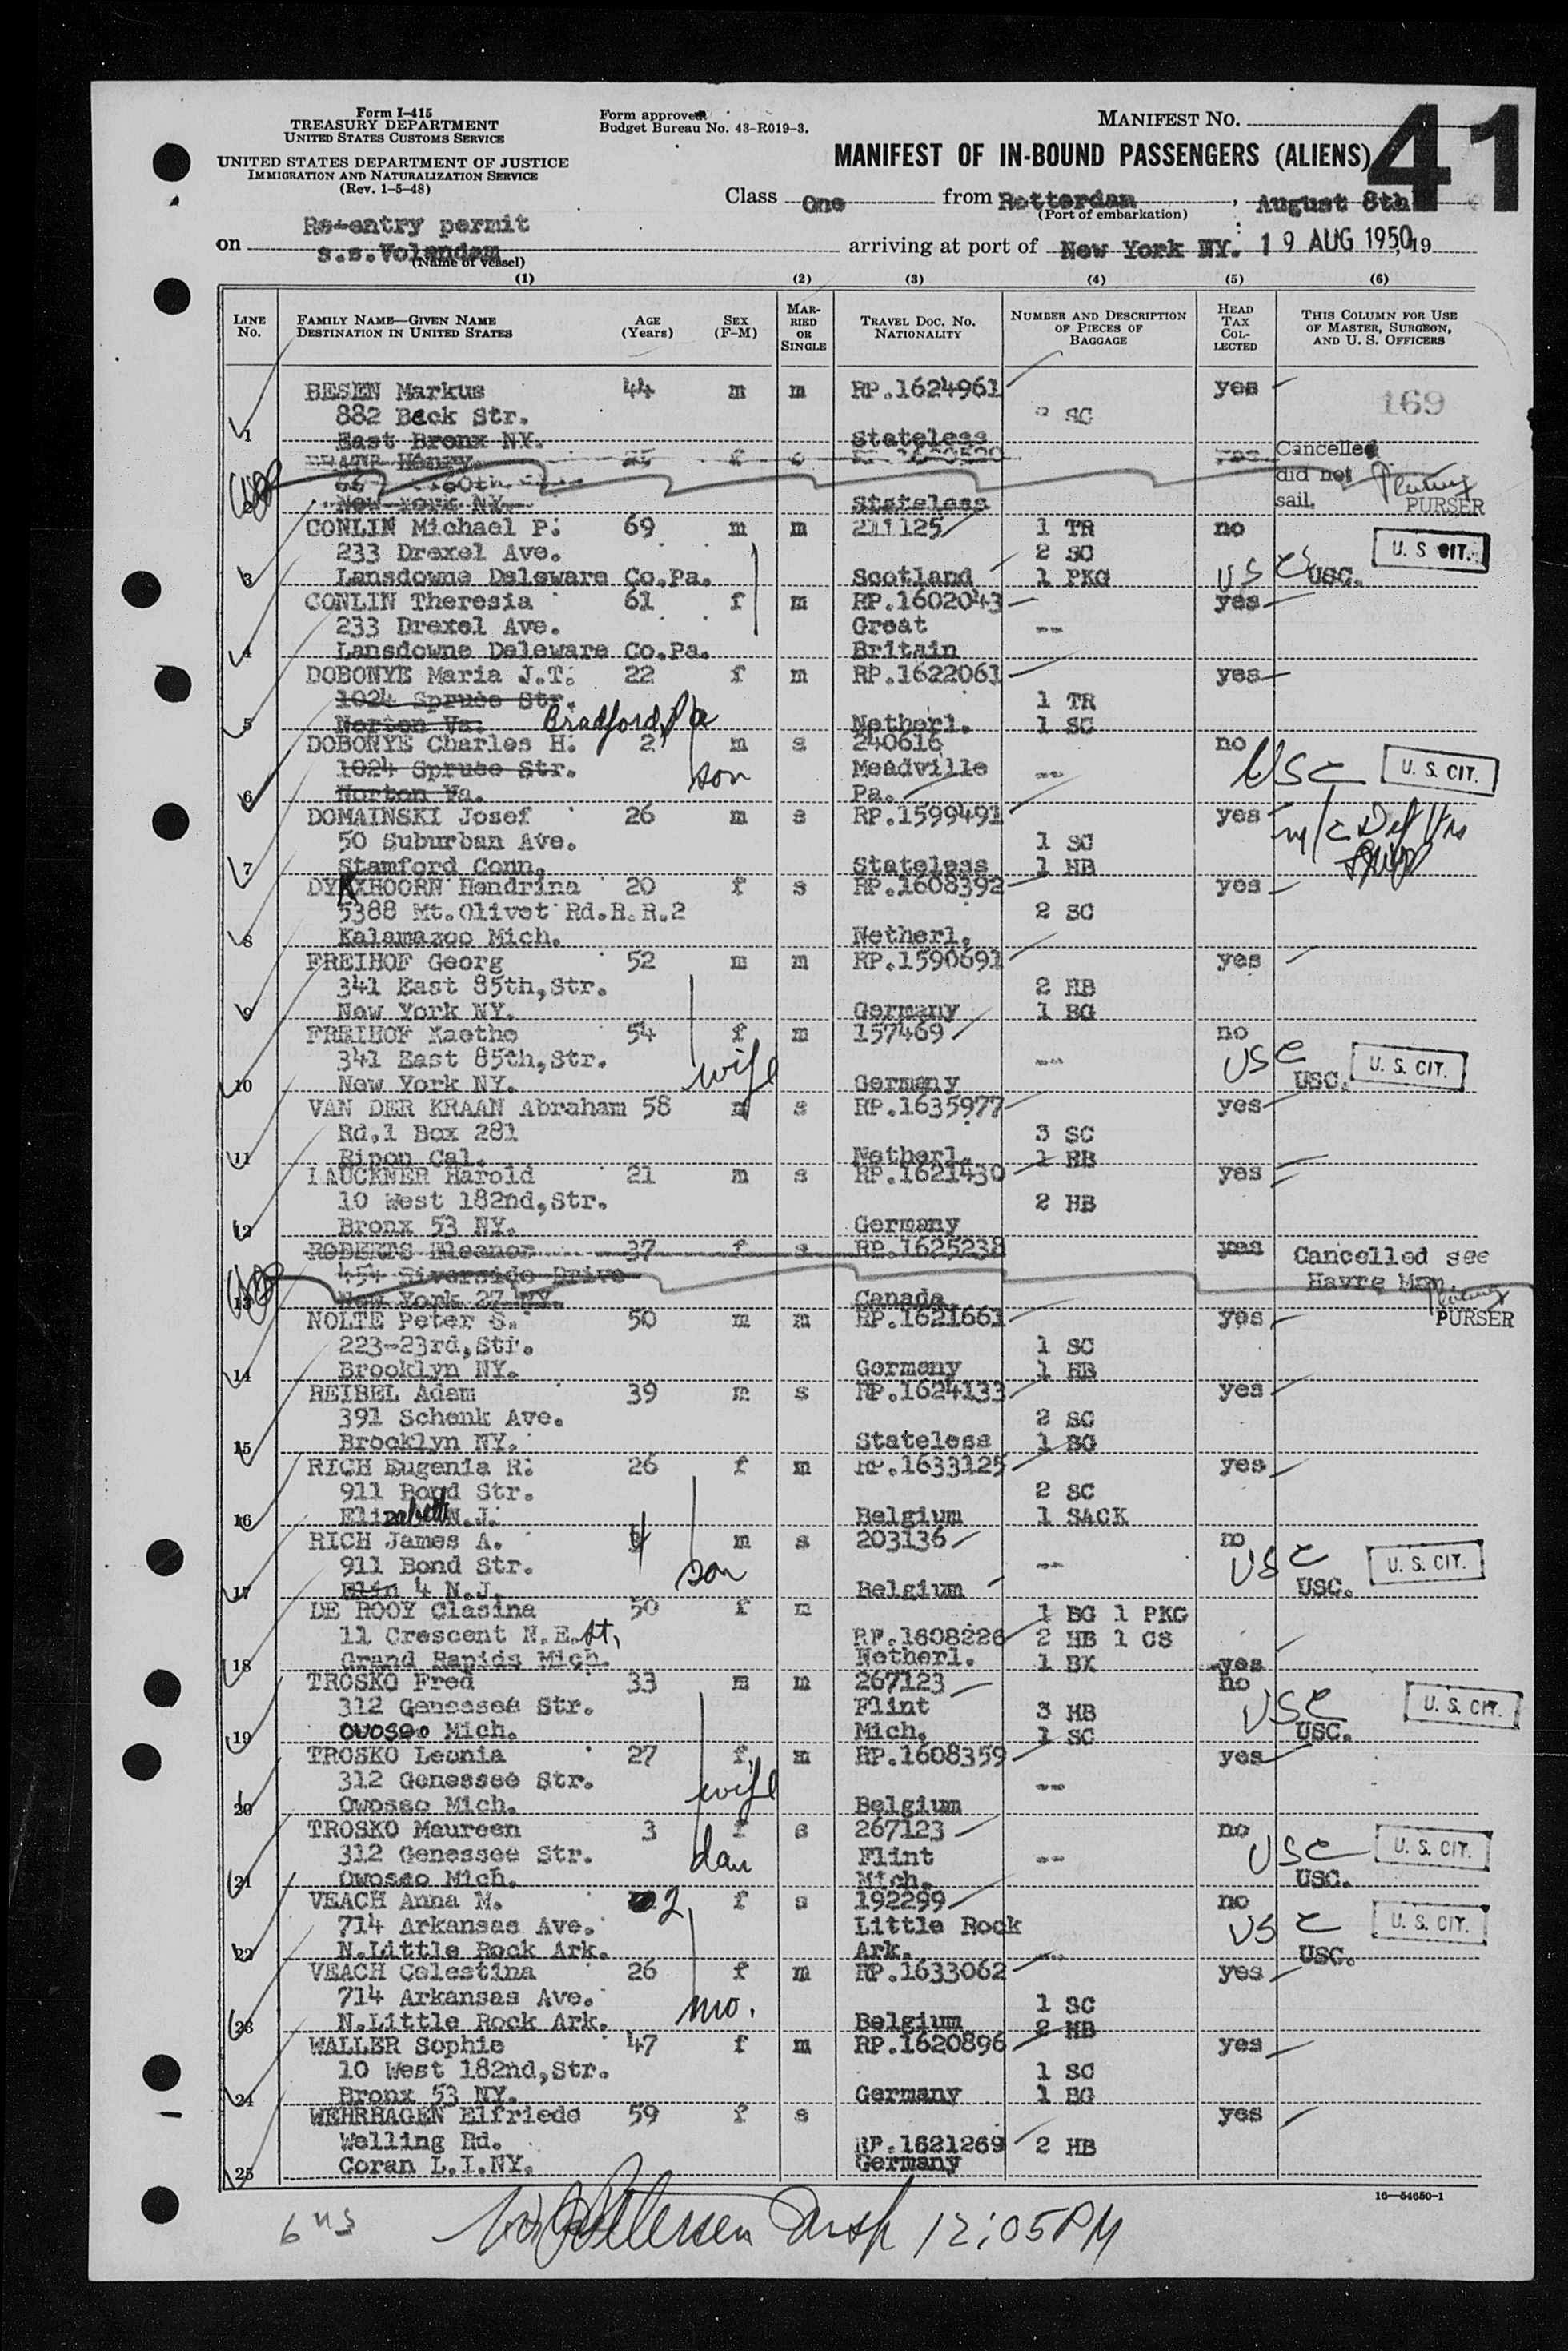 Form I-415
TREASURY DEPARTMENT
UNITED STATES CUSTOMS SERVICE
UNITED STATES DEPARTMENT OF JUSTICE
IMMIGRATION AND NATURALIZATION SERVICE
(Rev. 1-5-48)
Form approved
Budget Bureau No. 43-R019-3.
MANIFEST NO.
41
MANIFEST OF IN-BOUND PASSENGERS (ALIENS)
Class One from Rotterdam, August 8th
(Port of embarkation)
Re-entry permit
on s.s.Volendam arriving at port of New York NY. 19 AUG 1950, 19
(Name of vessel)
(1) (2) (3) (4) (5) (6)
LINE No. FAMILY NAME—GIVEN NAME DESTINATION IN UNITED STATES AGE (Years) SEX (F-M) MARRIED OR SINGLE TRAVEL DOC. NO. NATIONALITY NUMBER AND DESCRIPTION OF PIECES OF BAGGAGE HEAD TAX COLLECTED THIS COLUMN FOR USE OF MASTER, SURGEON, AND U. S. OFFICERS
BESEN Markus 44 m m RP.1624961 yes 169
882 Beck Str. SC
1 East Bronx NY. Stateless
Henry Cancelled
did not
New York NY. Stateless sail. PURSER
CONLIN Michael P. 69 m m 211125 1 TR no
233 Drexel Ave. 2 SC U. S. CIT.
3 Lansdowne Deleware Co.Pa. Scotland 1 PKG USC USC.
CONLIN Theresia 61 f m RP.1602043 yes
233 Drexel Ave. Great --
4 Lansdowne Deleware Co.Pa. Britain
DOBONYE Maria J.T. 22 f m RP.1622061 yes
1024 Spruce Str. 1 TR
5 Norton Va. Bradford, Pa Netherl. 1 SC
DOBONYE Charles H. 2 m s 240616 no
1024 Spruce Str. son Meadville -- USC U. S. CIT.
6 Norton Va. Pa.
DOMAINSKI Josef 26 m s RP.1599491 yes
50 Suburban Ave. 1 SC
7 Stamford Conn. Stateless 1 HB
DYKXHOORN Hendrina 20 f s RP.1608392 yes
5388 Mt.Olivet Rd.R.R.2 2 SC
8 Kalamazoo Mich. Netherl.
FREIHOF Georg 52 m m RP.1590691 yes
341 East 85th,Str. 2 HB
9 New York NY. Germany 1 BG
FREIHOF Kaethe 54 f m 157469 no
341 East 85th,Str. wife -- USC U. S. CIT.
10 New York NY. Germany USC.
VAN DER KRAAN Abraham 58 m s RP.1635977 yes
Rd.1 Box 281 3 SC
11 Ripon Cal. Netherl. 1 HB
LAUCKNER Harold 21 m s RP.1621430 yes
10 West 182nd,Str. 2 HB
12 Bronx 53 NY. Germany
ROBERTS Eleanor 37 f s RP.1625238 yes Cancelled see
454 Riverside Drive Havre Man.
13 New York 27 NY. Canada PURSER
NOLTE Peter S. 50 m m RP.1621661 yes
223-23rd,Str. 1 SC
14 Brooklyn NY. Germany 1 HB
REIBEL Adam 39 m s RP.1624133 yes
391 Schenk Ave. 2 SC
15 Brooklyn NY. Stateless 1 BG
RICH Eugenia R. 26 f m RP.1633125 yes
911 Bond Str. 2 SC
16 Elizabeth N.J. Belgium 1 SACK
RICH James A. 4 m s 203136 no
911 Bond Str. son -- USC U. S. CIT.
17 Elin 4 N.J. Belgium USC.
DE ROOY Clasina 50 f m 1 BG 1 PKG
11 Crescent N.E. St, RP.1608226 2 HB 1 CS
18 Grand Rapids Mich. Netherl. 1 BX yes
TROSKO Fred 33 m m 267123 no
312 Genessee Str. Flint 3 HB USC U. S. CIT.
19 Owosso Mich. Mich. 1 SC USC.
TROSKO Leonia 27 f m RP.1608359 yes
312 Genessee Str. wife --
20 Owosso Mich. Belgium
TROSKO Maureen 3 f s 267123 no
312 Genessee Str. dau Flint -- USC U. S. CIT.
21 Owosso Mich. Mich. USC.
VEACH Anna M. 2 f s 192299 no
714 Arkansas Ave. Little Rock USC U. S. CIT.
22 N.Little Rock Ark. Ark. -- USC.
VEACH Celestina 26 f m RP.1633062 yes
714 Arkansas Ave. mo. 1 SC
23 N.Little Rock Ark. Belgium 2 HB
WALLER Sophie 47 f m RP.1620896 yes
10 West 182nd,Str. 1 SC
24 Bronx 53 NY. Germany 1 BG
WEHRHAGEN Elfriede 59 f s yes
Welling Rd. RP.1621269 2 HB
25 Coran L.I.NY. Germany
16—54650-1
12:05 PM